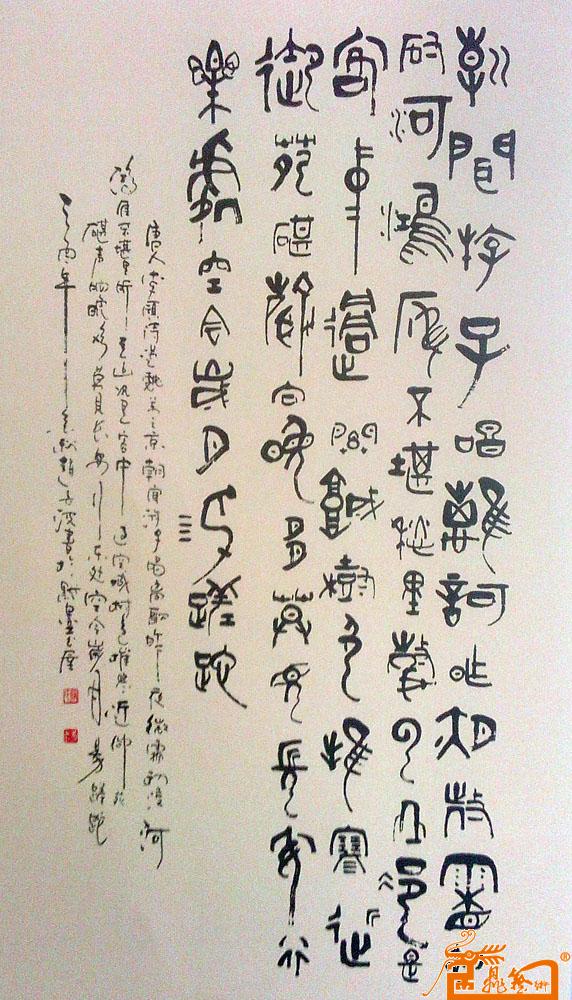 朝聞游子唱離歌昨夜微霜初
渡河鴻雁不堪愁里聽雲山況是
客中過關城樹色催寒近
御苑砧聲向晚多莫見長安行
樂處空令歲月易蹉跎
唐人李頎詩送魏萬之京朝聞游子唱離歌昨夜微霜初渡河
鴻雁不堪愁里聽雲山況是客中過關城樹色催寒近御苑
砧聲向晚多莫見長安行樂處空令歲月易蹉跎
酉年